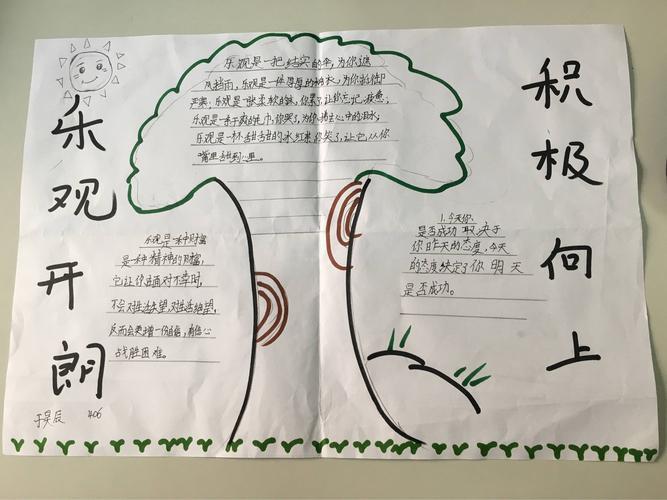 乐观开朗
乐观是一把结实的伞,为你遮
风挡雨,乐观是一件厚厚的棉衣,为你抵御
严寒;乐观是一张柔软的床,你累了,让你忘记疲惫;
乐观是一条干爽的毛巾,你哭了,为你擦去心中的泪水;
乐观是一杯甜甜的水,你笑了,让它从你
嘴里甜到心里。
乐观是一种财富
是一种精神的财富,
它让你在面对不幸时,
不会对生活失望,对生活绝望,
反而会更增一份自信,有信心
战胜困难。
406
1.今天你
是否成功 取决于
你昨天的态度,今天
的态度决定了你 明 天
是否成功。
积极向上